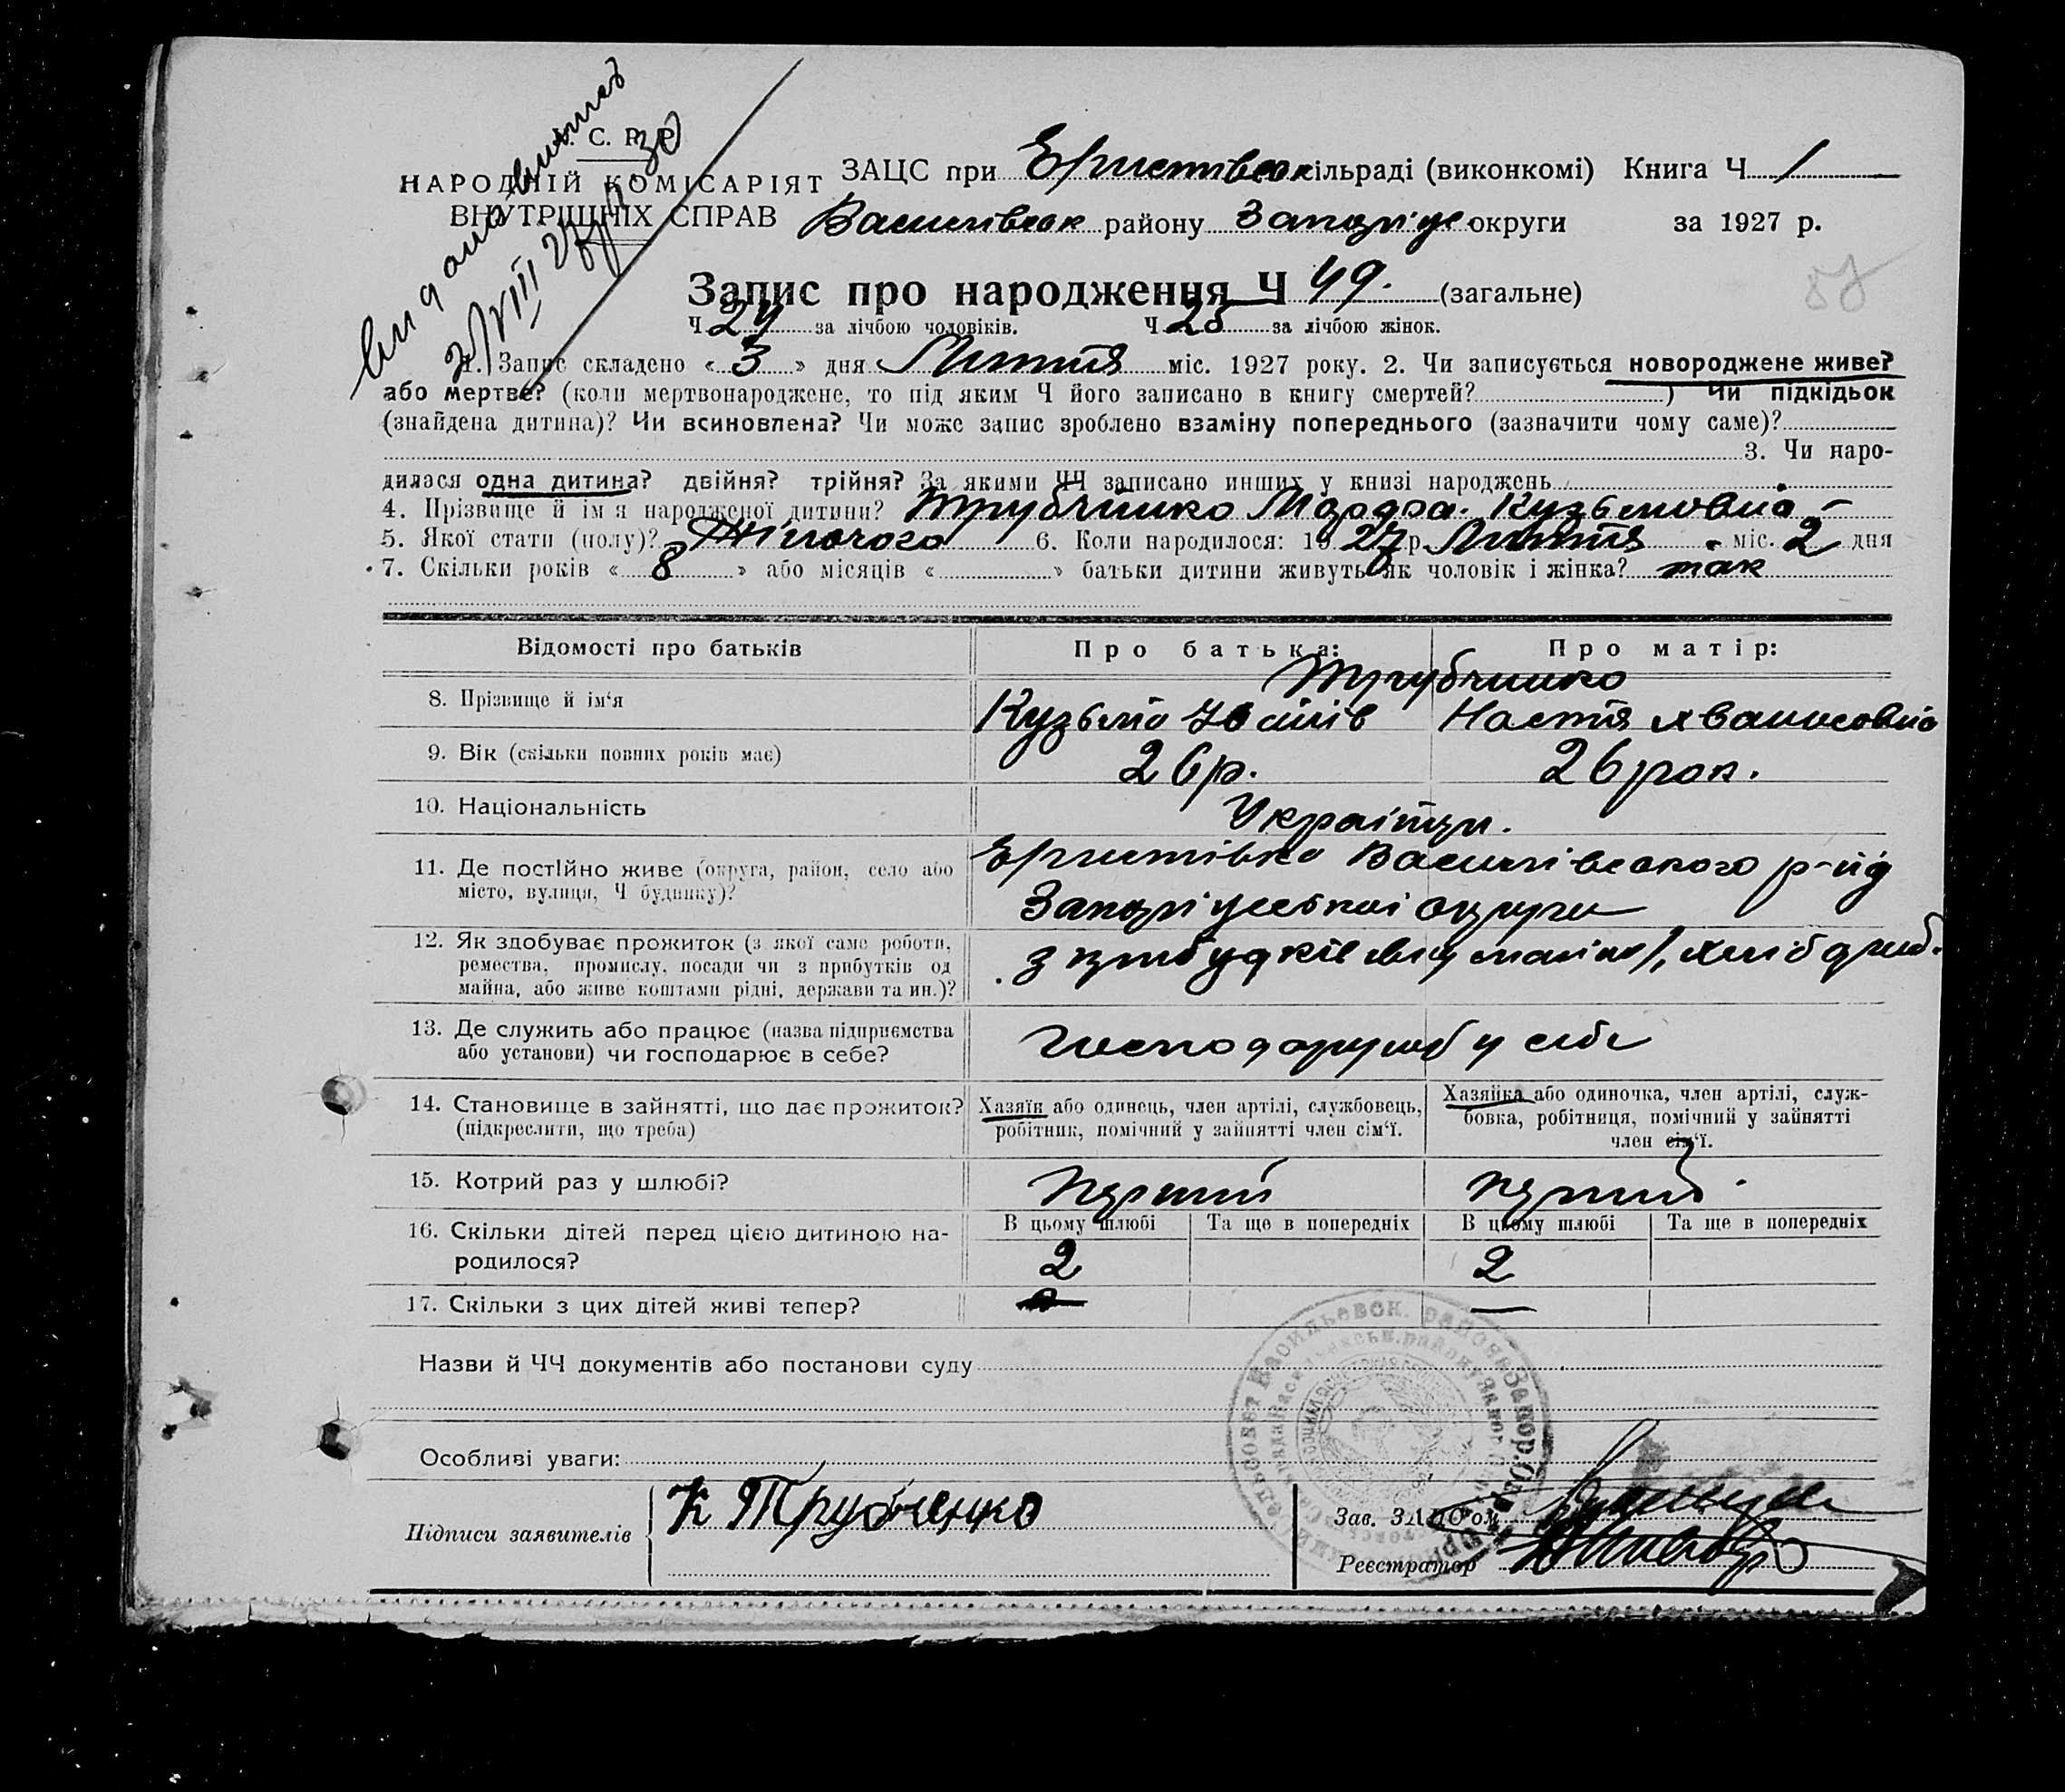 С. Р. Р.
НАРОДНІЙ КОМІСАРІЯТ
ВНУТРІШНІХ СПРАВ
ЗАЦС при Єристівськ сільраді (виконкомі) Книга Ч 1
Василівськ району Запоріж округи за 1927 р.
Запис про народження Ч 49. (загальне)
Ч 24 за лічбою чоловіків. Ч 25 за лічбою жінок.
1. Запис складено «3» дня Липня міс. 1927 року. 2. Чи записується новороджене живе?
або мертве? (коли мертвонароджене, то під яким Ч його записано в книгу смертей? ) Чи підкідьок
(знайдена дитина)? Чи всиновлена? Чи може запис зроблено взаміну попереднього (зазначити чому саме)?
3. Чи наро-
дилася одна дитина? двійня? трійня? За якими ЧЧ записано инших у книзі народжень
4. Прізвище й ім'я народженої дитини? Кузьмовна
5. Якої статі (полу)? Жіночого 6. Коли народилося: 1927 р. Липня міс. 2 дня
7. Скільки років «8» або місяців « » батьки дитини живуть як чоловік і жінка? так
Відомості про батьків
Про батька:
Про матір:
8. Прізвище й ім'я
Кузьма
Настя
9. Вік (скільки повних років має)
26 р.
26 рок.
10. Національність
Українци.
11. Де постійно живе (округа, район, село або
місто, вулиця, Ч будинку)?
Єристівка Василівського р-ну
Запоріжської округи
12. Як здобуває прожиток (з якої саме роботи,
ремества, промислу, посади чи з прибутків од
майна, або живе коштами рідні, держави та ин.)?
13. Де служить або працює (назва підприємства
або установи) чи господарює в себе?
у себе
14. Становище в зайнятті, що дає прожиток?
(підкреслити, що треба)
Хазяїн або одинець, член артілі, службовець,
робітник, помічний у зайнятті член сім'ї.
Хазяйка або одиночка, член артілі, служ-
бовка, робітниця, помічний у зайнятті
член сім'ї.
15. Котрий раз у шлюбі?
перший
перший
16. Скільки дітей перед цією дитиною на-
родилося?
В цьому шлюбі
Та ще в попередніх
В цьому шлюбі
Та ще в попередніх
2
2
17. Скільки з цих дітей живі тепер?
—
Назви й ЧЧ документів або постанови суду
Особливі уваги:
Підписи заявителів
К Трубченко
Зав. ЗАЦСом
Реєстратор